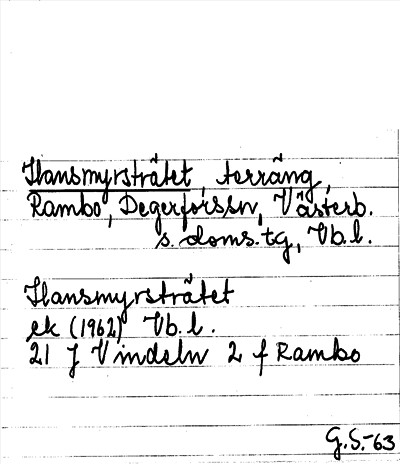 Hansmyrstråtet, terräng,
Rambo, Degerforssn, Västerb.
s. doms. tg, Vb. l.
Hansmyrstråtet
ek (1962) Vb. l.
21 J Vindeln 2 f Rambo
G.S.-63